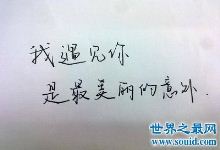 我遇见你
是最美丽的意外.
世界之最网
www.souid.com